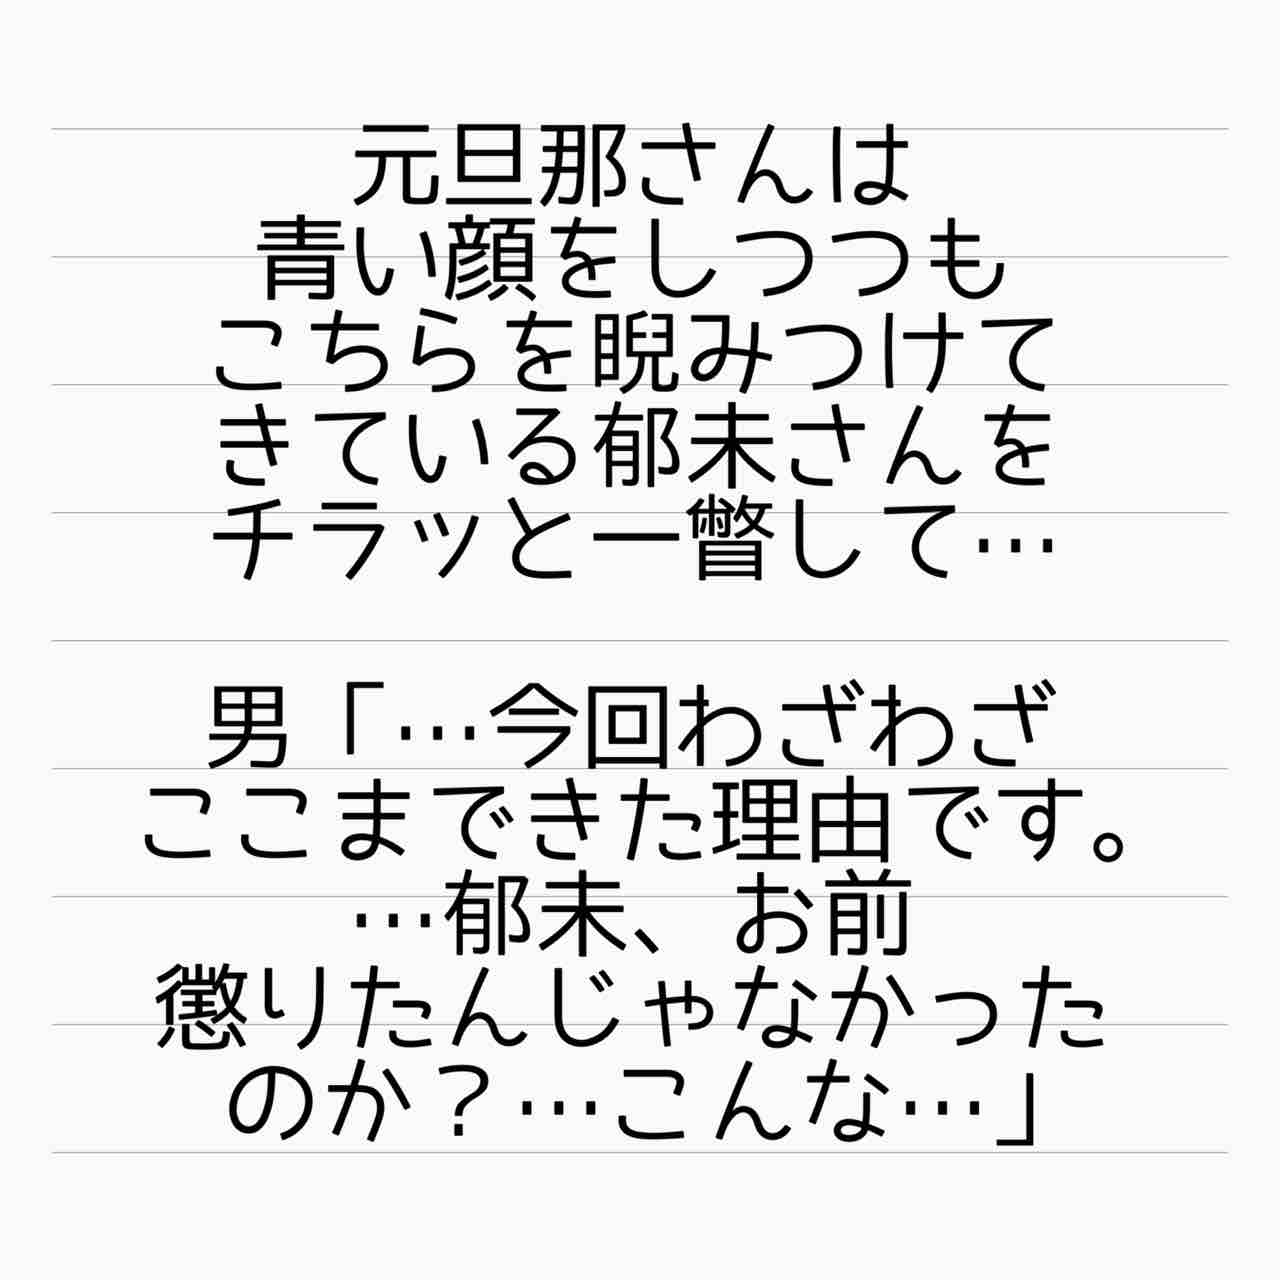 元旦那さんは
青い顔をしつつも
こちらを睨みつけて
きている郁未さんを
チラッと一瞥して…
男「…今回わざわざ
ここまできた理由です。
…郁未、お前
懲りたんじゃなかった
のか？…こんな…」